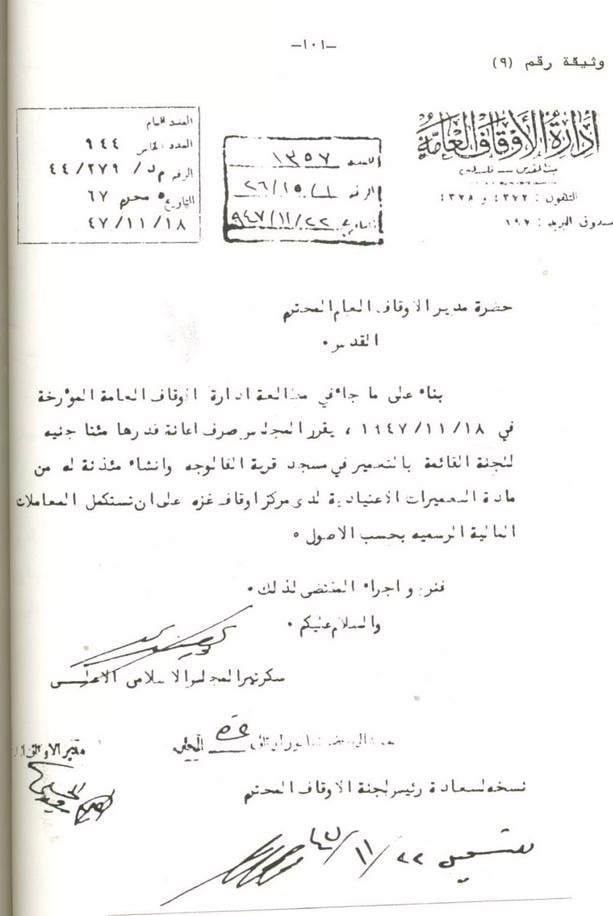 —١٠١—
وثيقة رقم (٩)
إدارة الأوقاف العامة
بيت المقدس - فلسطين
التلفون : ٤٣٧٢ و ٤٣٧٨
صندوق البريد : ١٩٢
١٣٥٧
الرقم ٢٦/١٥/١
التاريخ ٩٤٧/١١/٢٢
العدد العام
العدد الخاص ٩٤٤
الرقم م د/ ٤٤/٢٧٩
التاريخ ٥ محرم ٦٧
٤٧/١١/١٨
حضرة مدير الاوقاف العام المحترم
القدس ٠
بناء على ما جاء في مطالعة ادارة الاوقاف العامة المؤرخة
في ١٩٤٧/١١/١٨ ، يقرر المجلس صرف اعانة قدرها مئتا جنيه
للجنة القائمة بالتعمير في مسجد قرية الفالوجه وانشاء مئذنة له من
مادة التعميرات الاعتيادية لدى مركز اوقاف غزه على ان تستكمل المعاملات
المالية الرسميه بحسب الاصول ٠
فنرجو اجراء المقتضى لذلك ٠
والسلام عليكم ٠
سكرتير المجلس الاسلامي الاعلى
مدير الاوقاف
نسخه لسعادة رئيس لجنة الاوقاف المحترم
٤٧/١١/٢٢